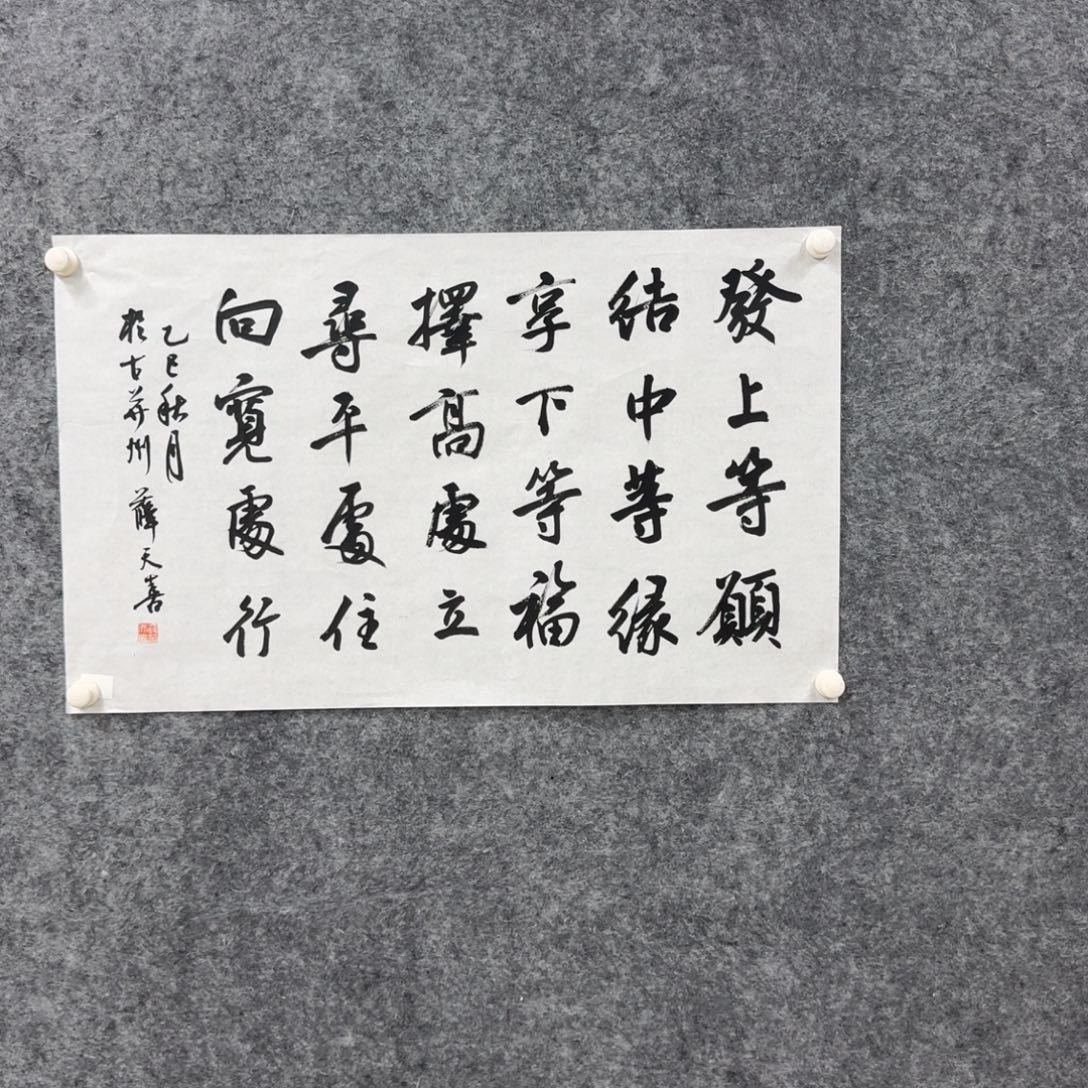 發上等願
結中等緣
享下等福
擇高處立
尋平處住
向寬處行
乙巳秋月
於古并州 薛天喜